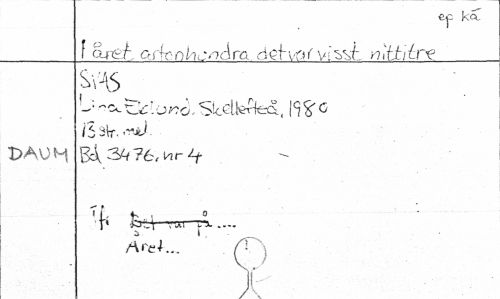 ep kä
I året artonhundra det var visst nittitre
SMS
Lina Eklund. Skellefteå, 1980
13 str. mel.
DAUM Bd 3476, nr 4
Jfr Det var på....
Året...